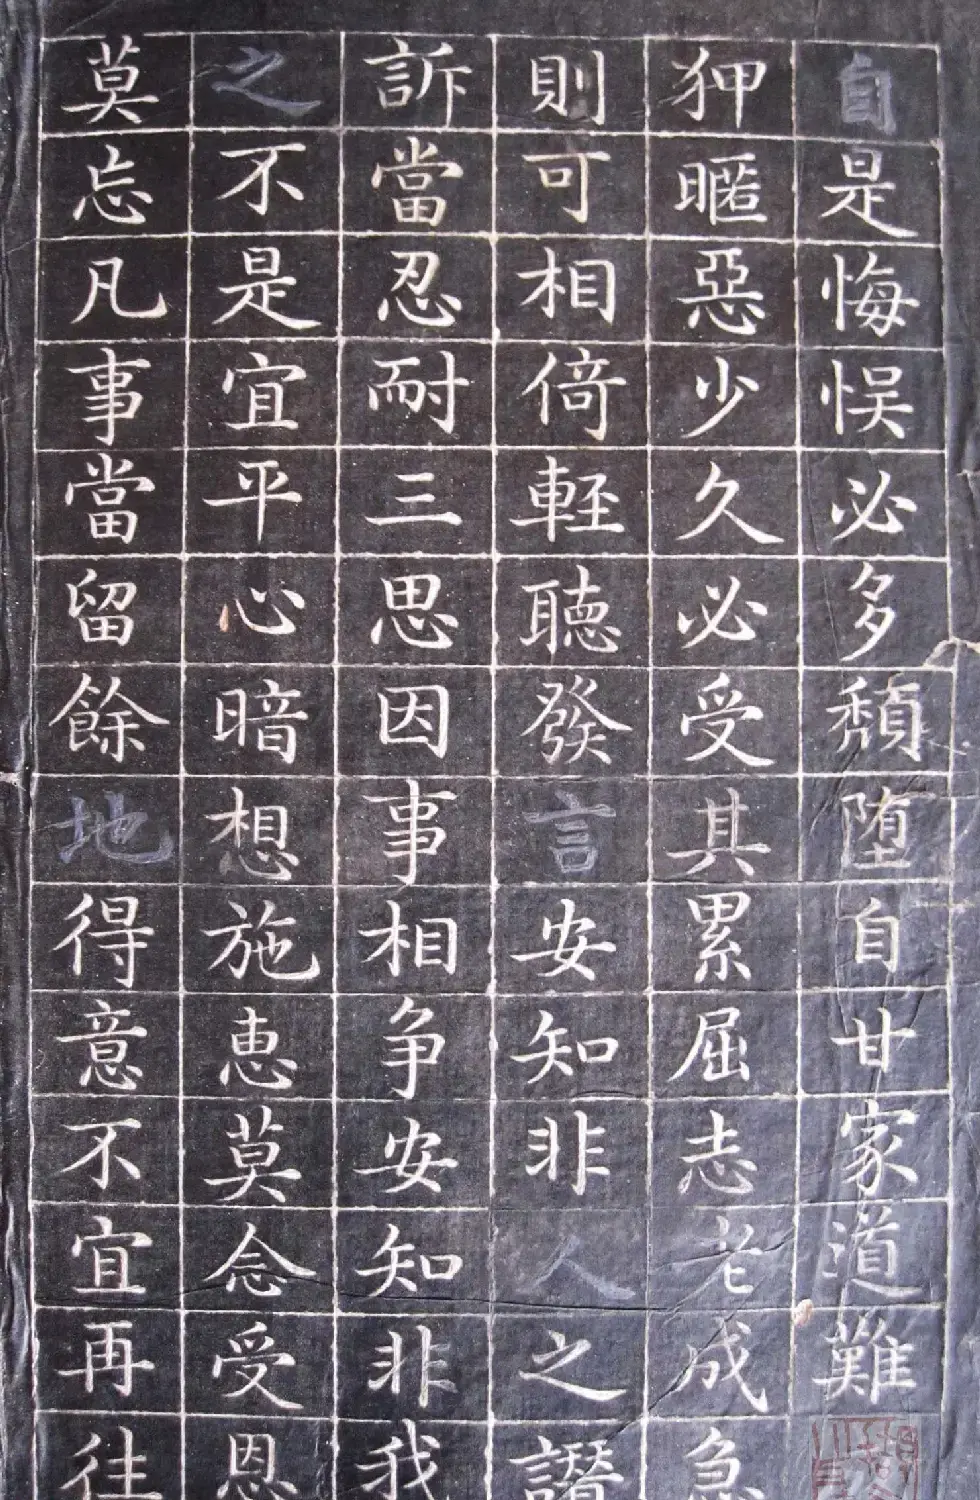 自是悔悞必多頽堕自甘家道難
狎暱惡少久必受其累屈志老成急
則可相倚輕聽發言安知非人之譖
訴當忍耐三思因事相争安知非我
之不是宜平心暗想施恵莫念受恩
莫忘凡事當留餘地得意不宜再往